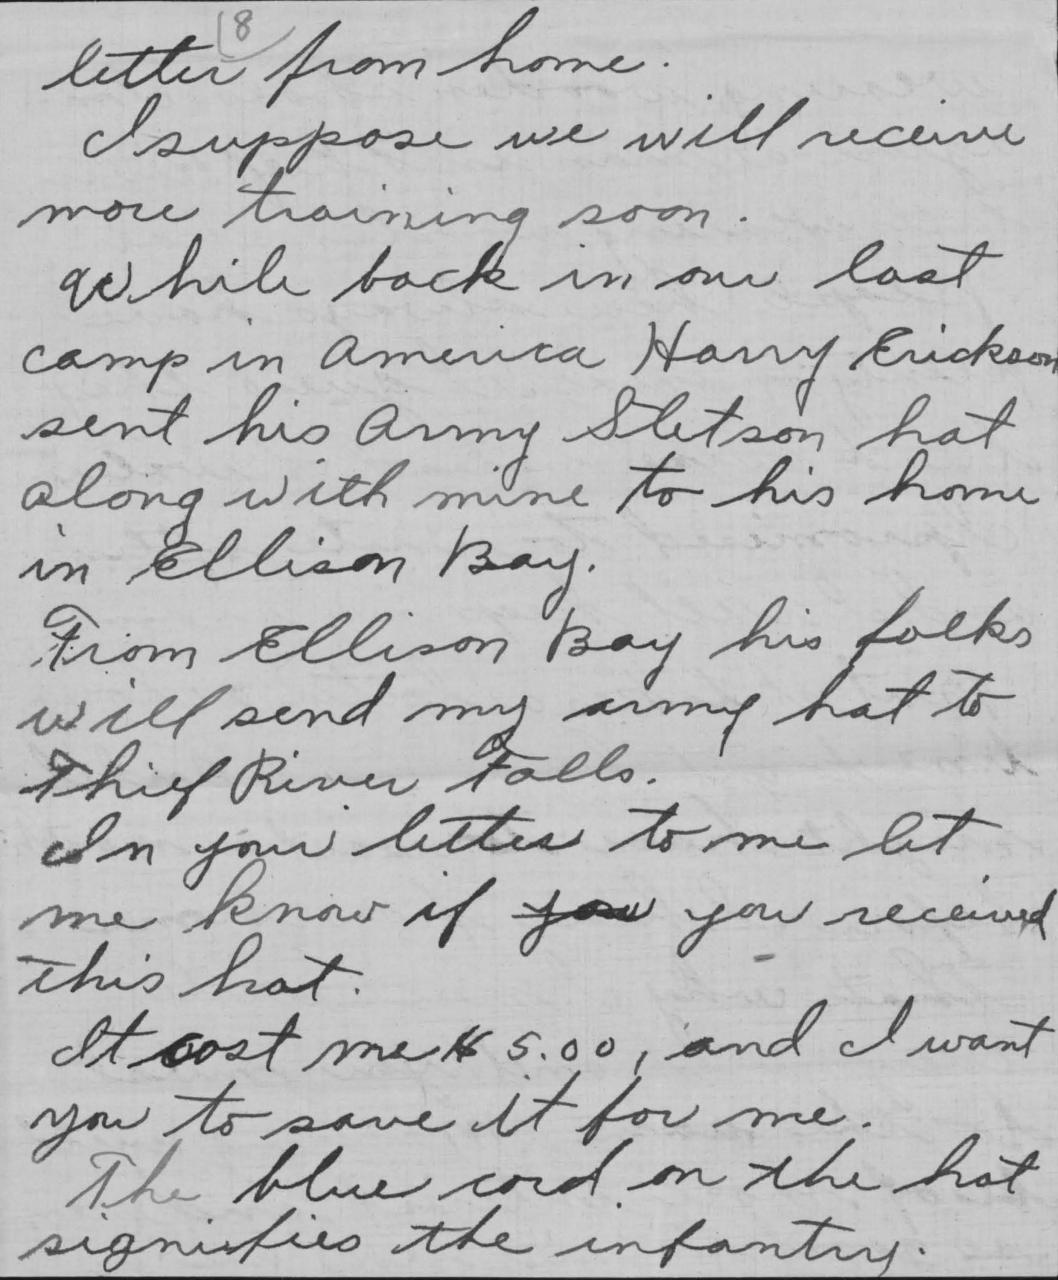 8
letter from home.
I suppose we will receive
more training soon.
While back in our last
camp in America Harry Erickson
sent his Army Stetson hat
along with mine to his home
in Ellison Bay.
From Ellison Bay his folks
will send my army hat to
Thief River Falls.
In your letter to me let
me know if you you received
this hat.
It cost me $5.00, and I want
you to save it for me.
The blue cord on the hat
signifies the infantry.